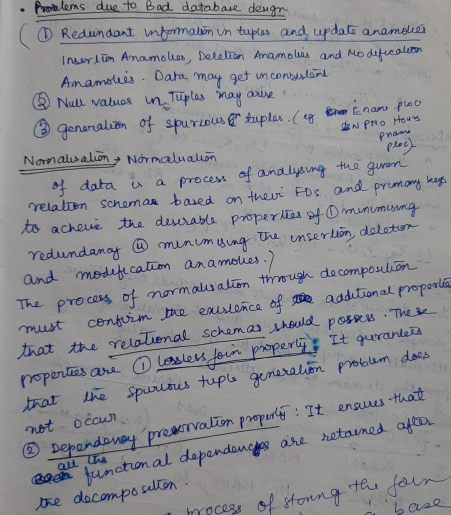 • Problems due to Bad database design
① Redundant information in tuples and update anamolies
Insertion Anamolies, Deletion Anamolies and Modification
Anamolies. Data may get inconsistent
② Null values in Tuples may arise
③ generation of spurious tuples. (eg Ename Ploc
SN PNO Hours
pname
ploc)
Normalisation → Normalisation
of data is a process of analysing the given
relation schemas based on their FDs and primary keys
to acheive the desirable properties of ① minimising
redundancy ⑪ minimising the insertion, deletion
and modification anamolies.)
The process of normalisation through decomposition
must confirm the existence of additional properties
that the relational schemas should possess. These
properties are ① lossless join property: It gurantees
that the spurious tuple generation problem does
not occur
② Dependency preservation property: It ensures that
all the functional dependencies are retained after
the decomposition.
process of storing the join
base